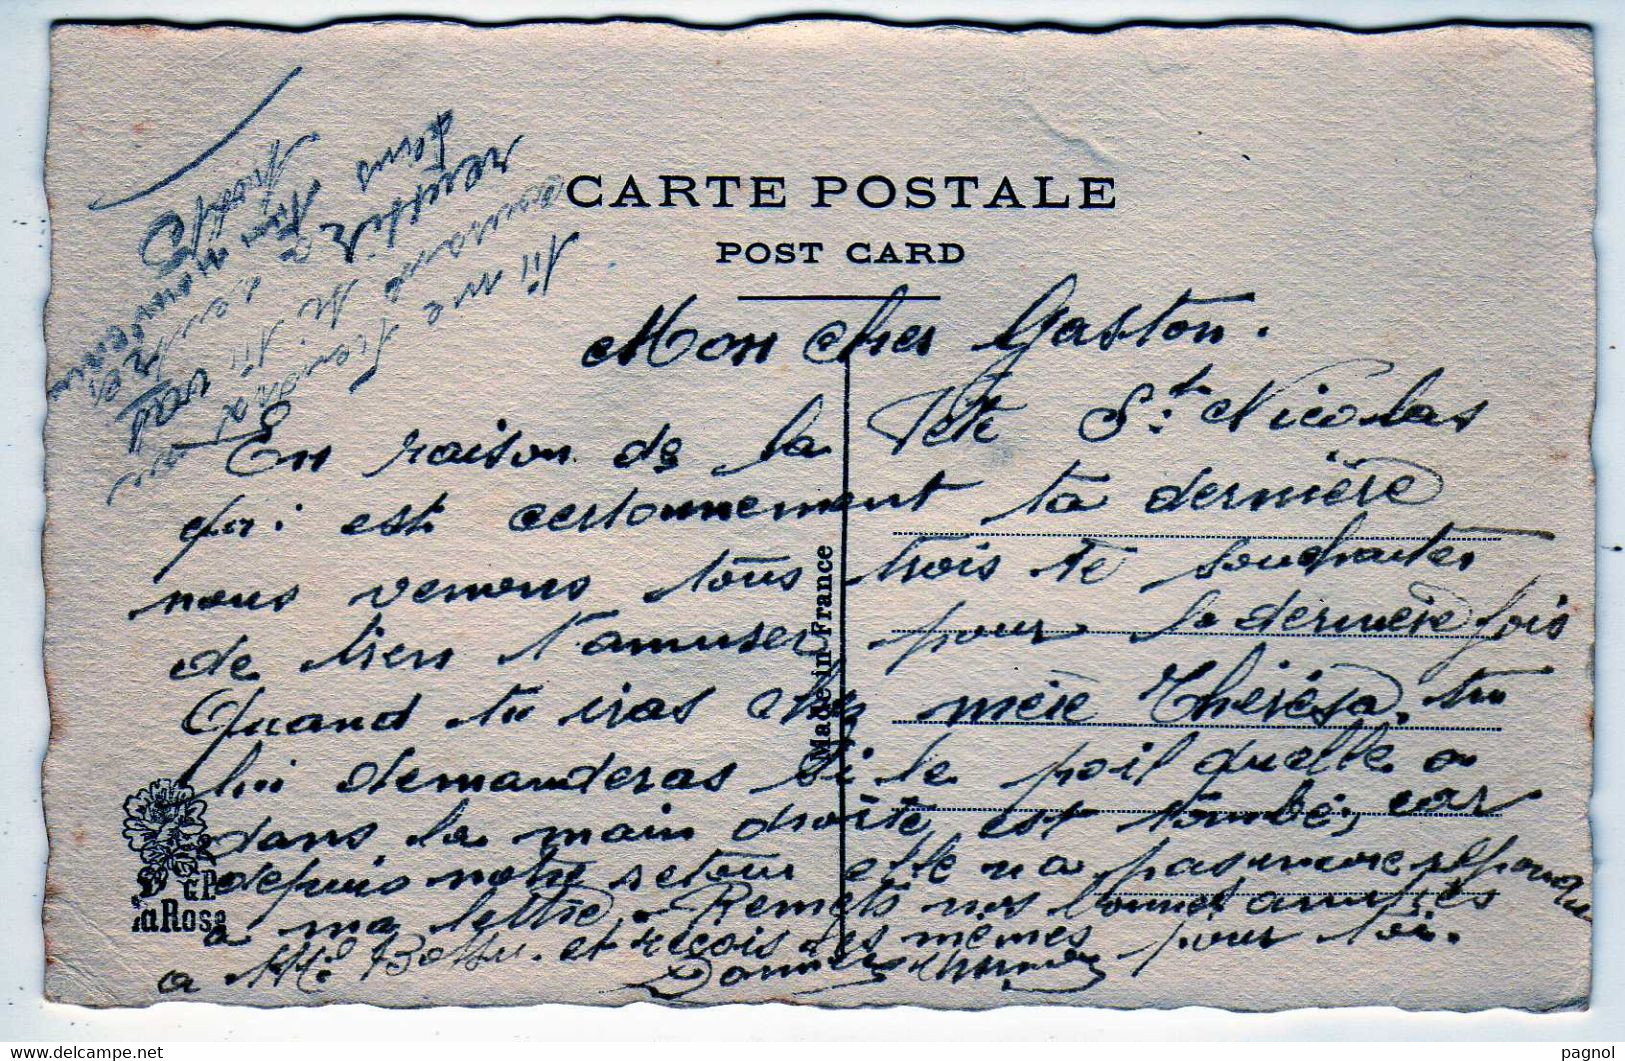 CARTE POSTALE
POST CARD
Mon cher Gaston.
En raison de la Fête St. Nicolas
qui est certainement ta dernière
nous venons tous trois te souhaiter
de bien t'amuser pour la dernière fois
Quand tu iras chez mère Thérésa, tu
lui demanderas si le poil quelle a
dans la main droite est tombé, car
depuis notre retour elle n a pas encore répondu
a ma lettre. Remets nos bonnes amitiés
a Mr Bossu. et reçois les mêmes pour toi.
Made in France
G.P.
la Rose
pagnol